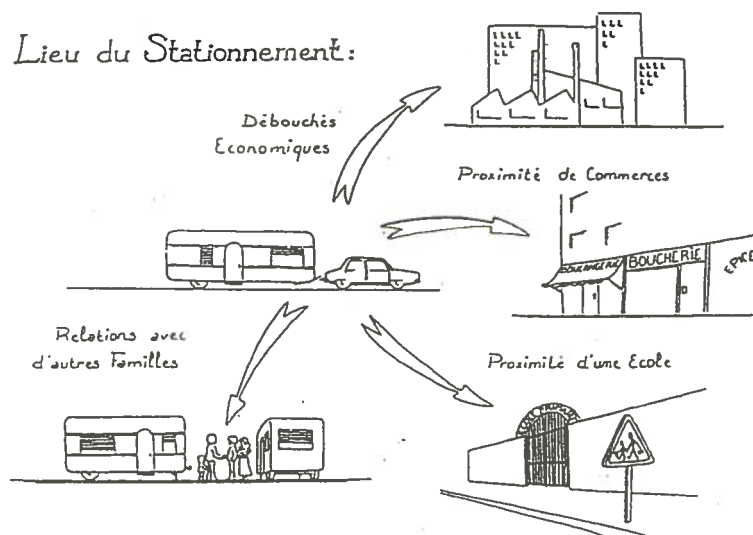 Lieu du Stationnement:
Débouchés
Economiques
Proximité de Commerces
BOULANGERIE
BOUCHERIE
EPICE
Relations avec
d'autres Familles
Proximité d'une Ecole